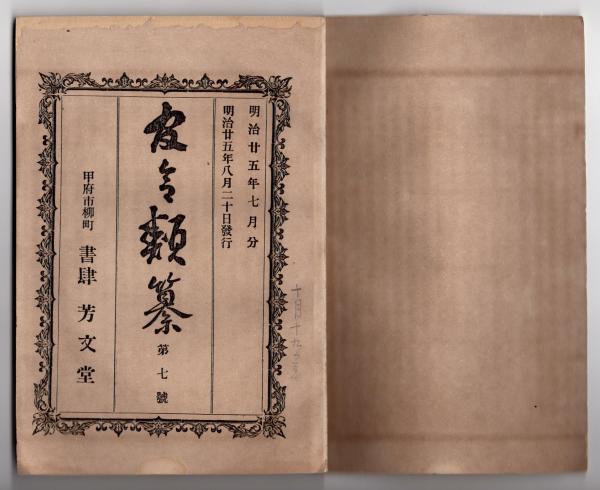 明治廿五年七月分
明治廿五年八月二十日發行
官令類纂
第七號
甲府市柳町 書肆 芳文堂
十月十九